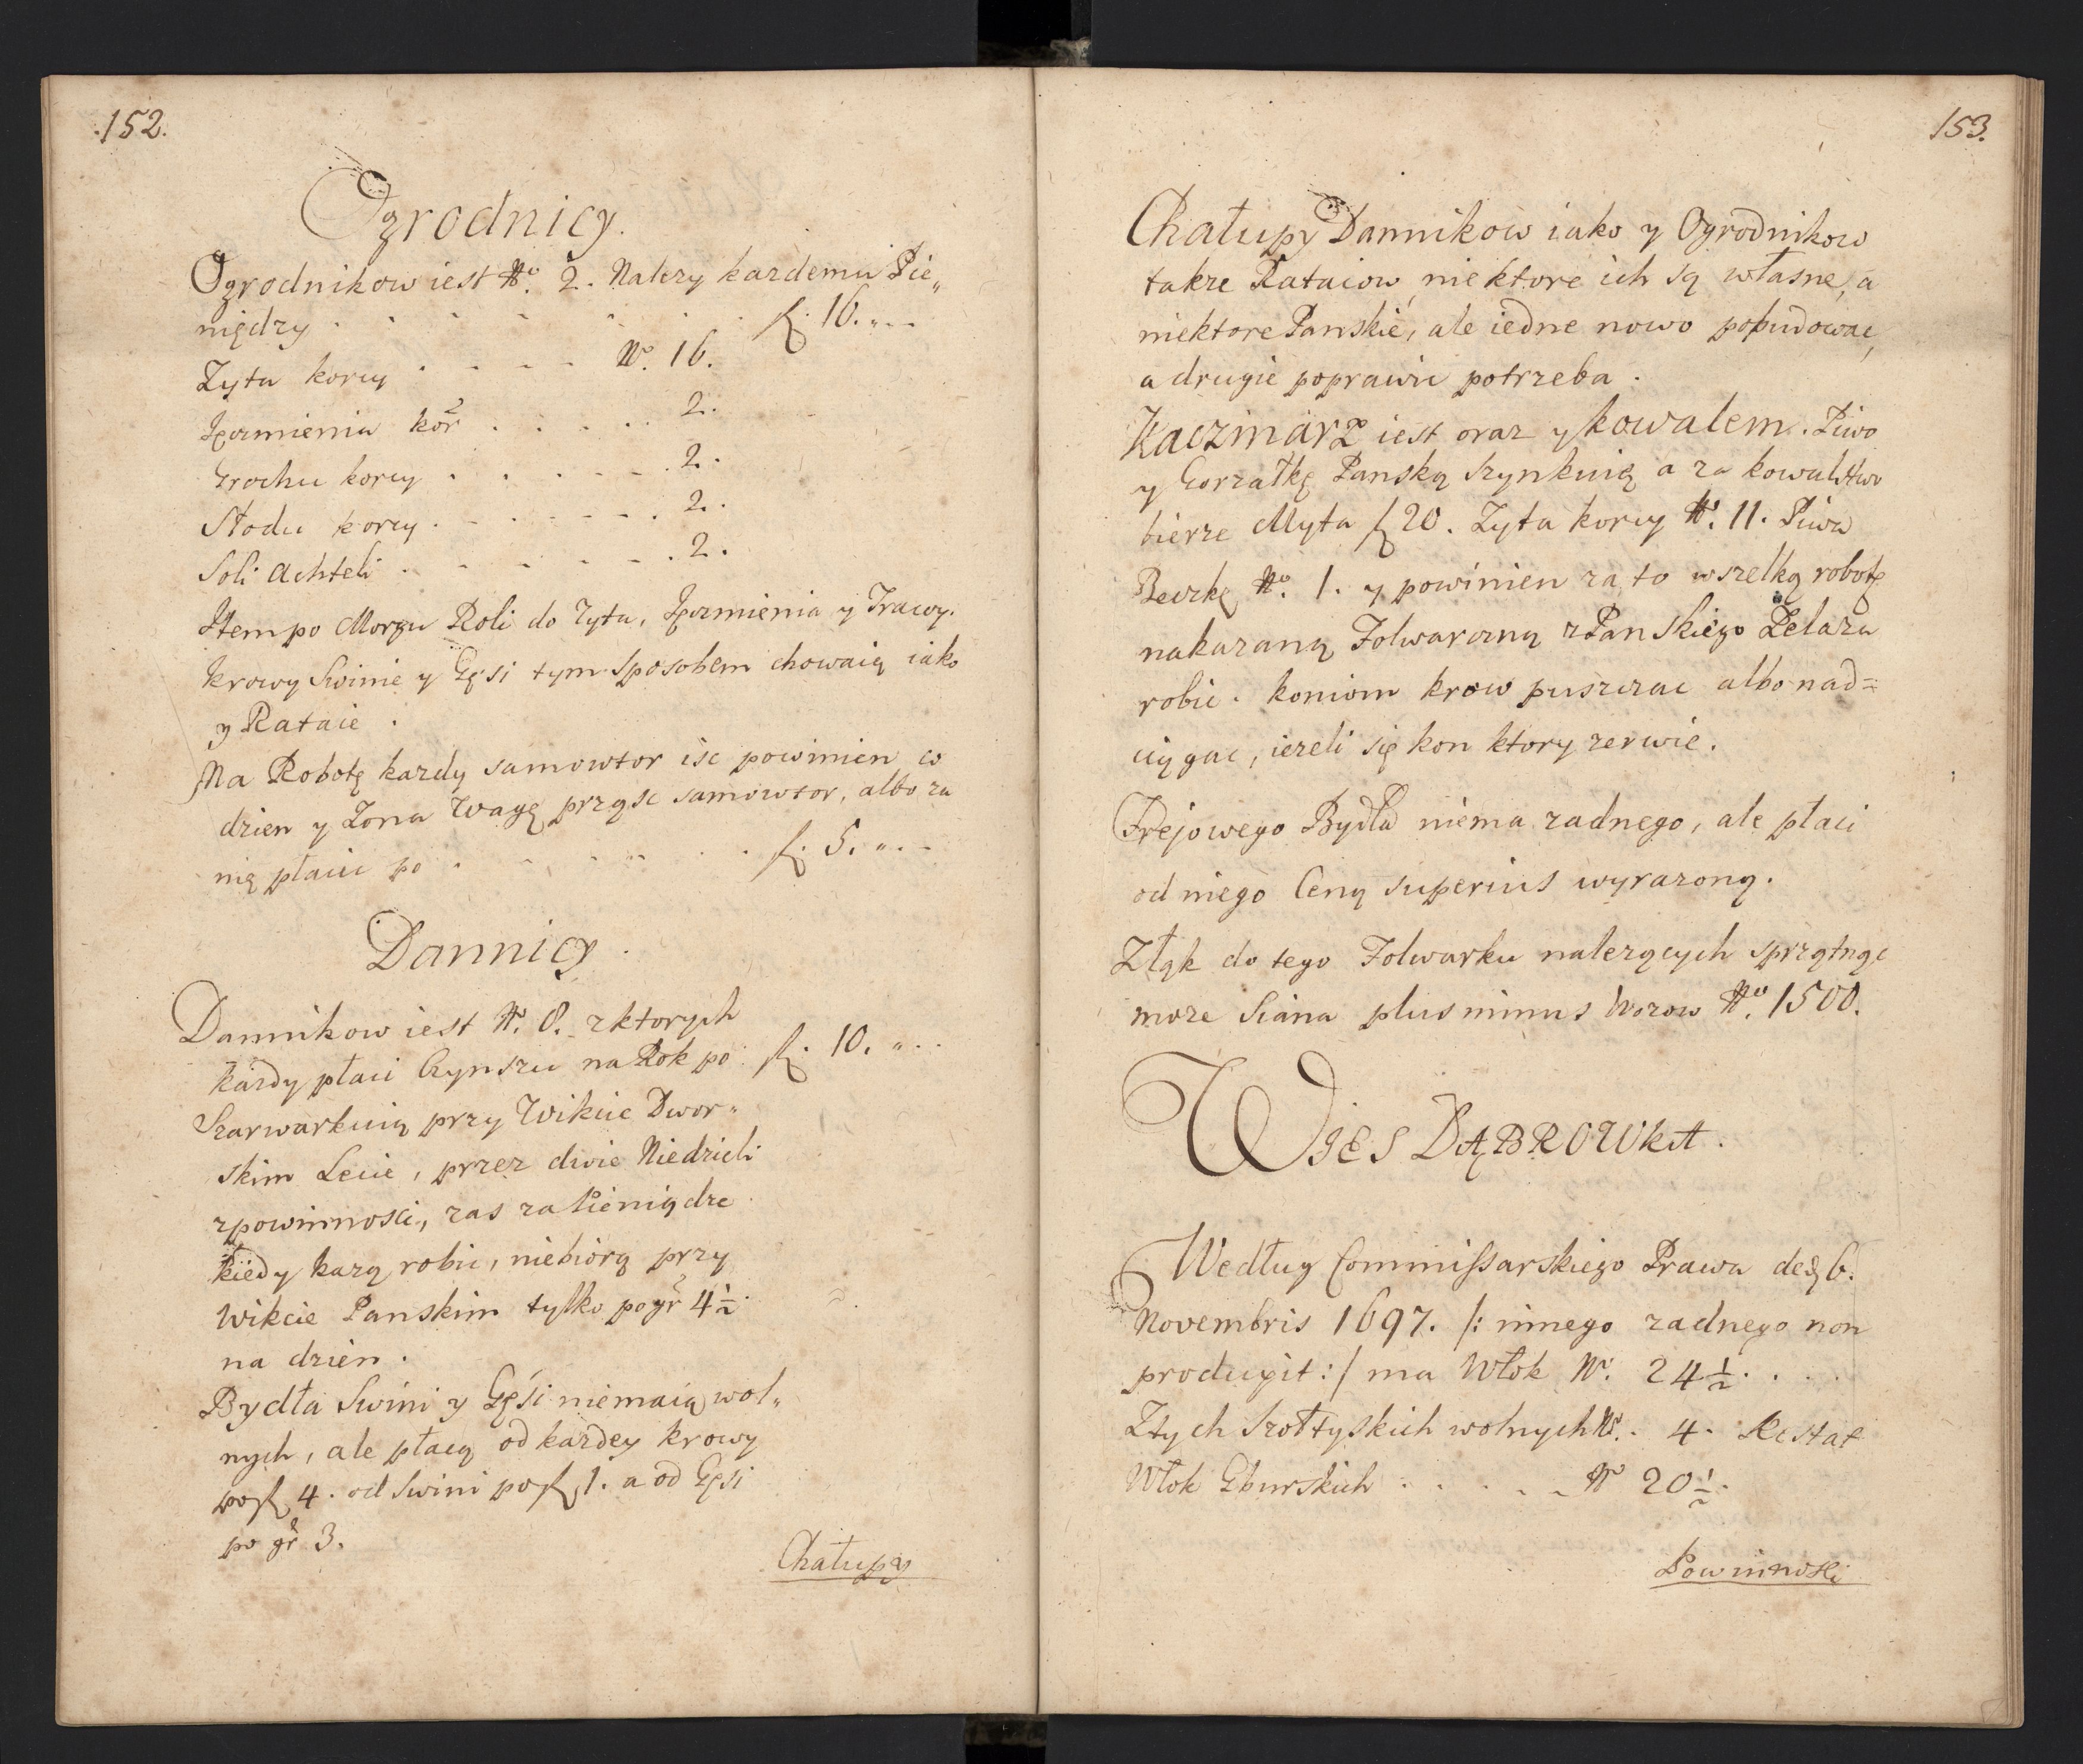 152.
Ogrodnicy.
Ogrodnikow iest No. 2. Nalezy kazdemu Pie„
niędzy . . . . . . . . f. 16. „ . -
Zyta korcy . . . . No. 16.
Jęczmienia kor̃ . . . . . 2.
Grochu korcy . . . . . . 2.
Słodu korcy . . . . . . 2.
Soli Achteli . . . . . . 2.
Item po Morgu Roli do Zyta, Jęczmienia y Trawy.
Krowy Swinie y Gęsi tym Sposobem chowaią iako
y Rataie .
Na Robotę kazdy samowtor isc powinien co
dzien y Zona Wagę prząsc samowtor, albo za
nię płacic po . . . . . . f. 5. „ . -
Dannicy .
Dannikow iest No. 8. z ktorych
kazdy płaci Czynszu na Rok po f. 10. „ . .
Szarwarkuią przy Wikcie Dwor„
skim Lecie, przez dwie Niedzieli
zpowinnosci, zas za Pieniądze
kiedy kazą robic, niebiorą przy
Wikcie Panskim tylko po gr̃ 4½
na dzien .
Bydła Swini y Gęsi niemaią wol„
nych, ale płacą od kazdey krowy
po f 4. od Swini po f 1. a od Gęsi
po gr̃ 3.
Chałupy
153.
Chałupy Dannikow iako y Ogrodnikow
takze Rataiow, niektore ich są własne, a
niektore Panskie, ale iedne nowo pobudowac,
a drugie poprawic potrzeba .
Kaczmarz iest oraz y kowalem. Piwo
y Gorzałkę Panską Szynkuią a za kowalstwo
bierze Myta f 20. Zyta korcy No. 11. Piwa
Beczkę No. 1. y powinien za to wszelką robotę
nakazaną Folwarczną z Panskiego Zelaza
robic. koniom krew puszczac albo nad=
ciągac, iezeli się kon ktory zerwie.
Frejowego Bydła niema zadnego, ale płaci
od niego Ceną superius wyrazoną.
Z Łąk do tego Folwarku nalezących sprzątnąc
moze Siana plus minus Wozow No. 1500.
WIES DĄBROWKA .
Według Commissarskiego Prawa de 6.
Novembris 1697. /: innego zadnego non
produxit :/ ma Włok No. 24½ . . . .
Z tych Szołtyskich wolnych No. 4. Restat
Włok Gburskich . . . . . No 20½.
Powinnosci